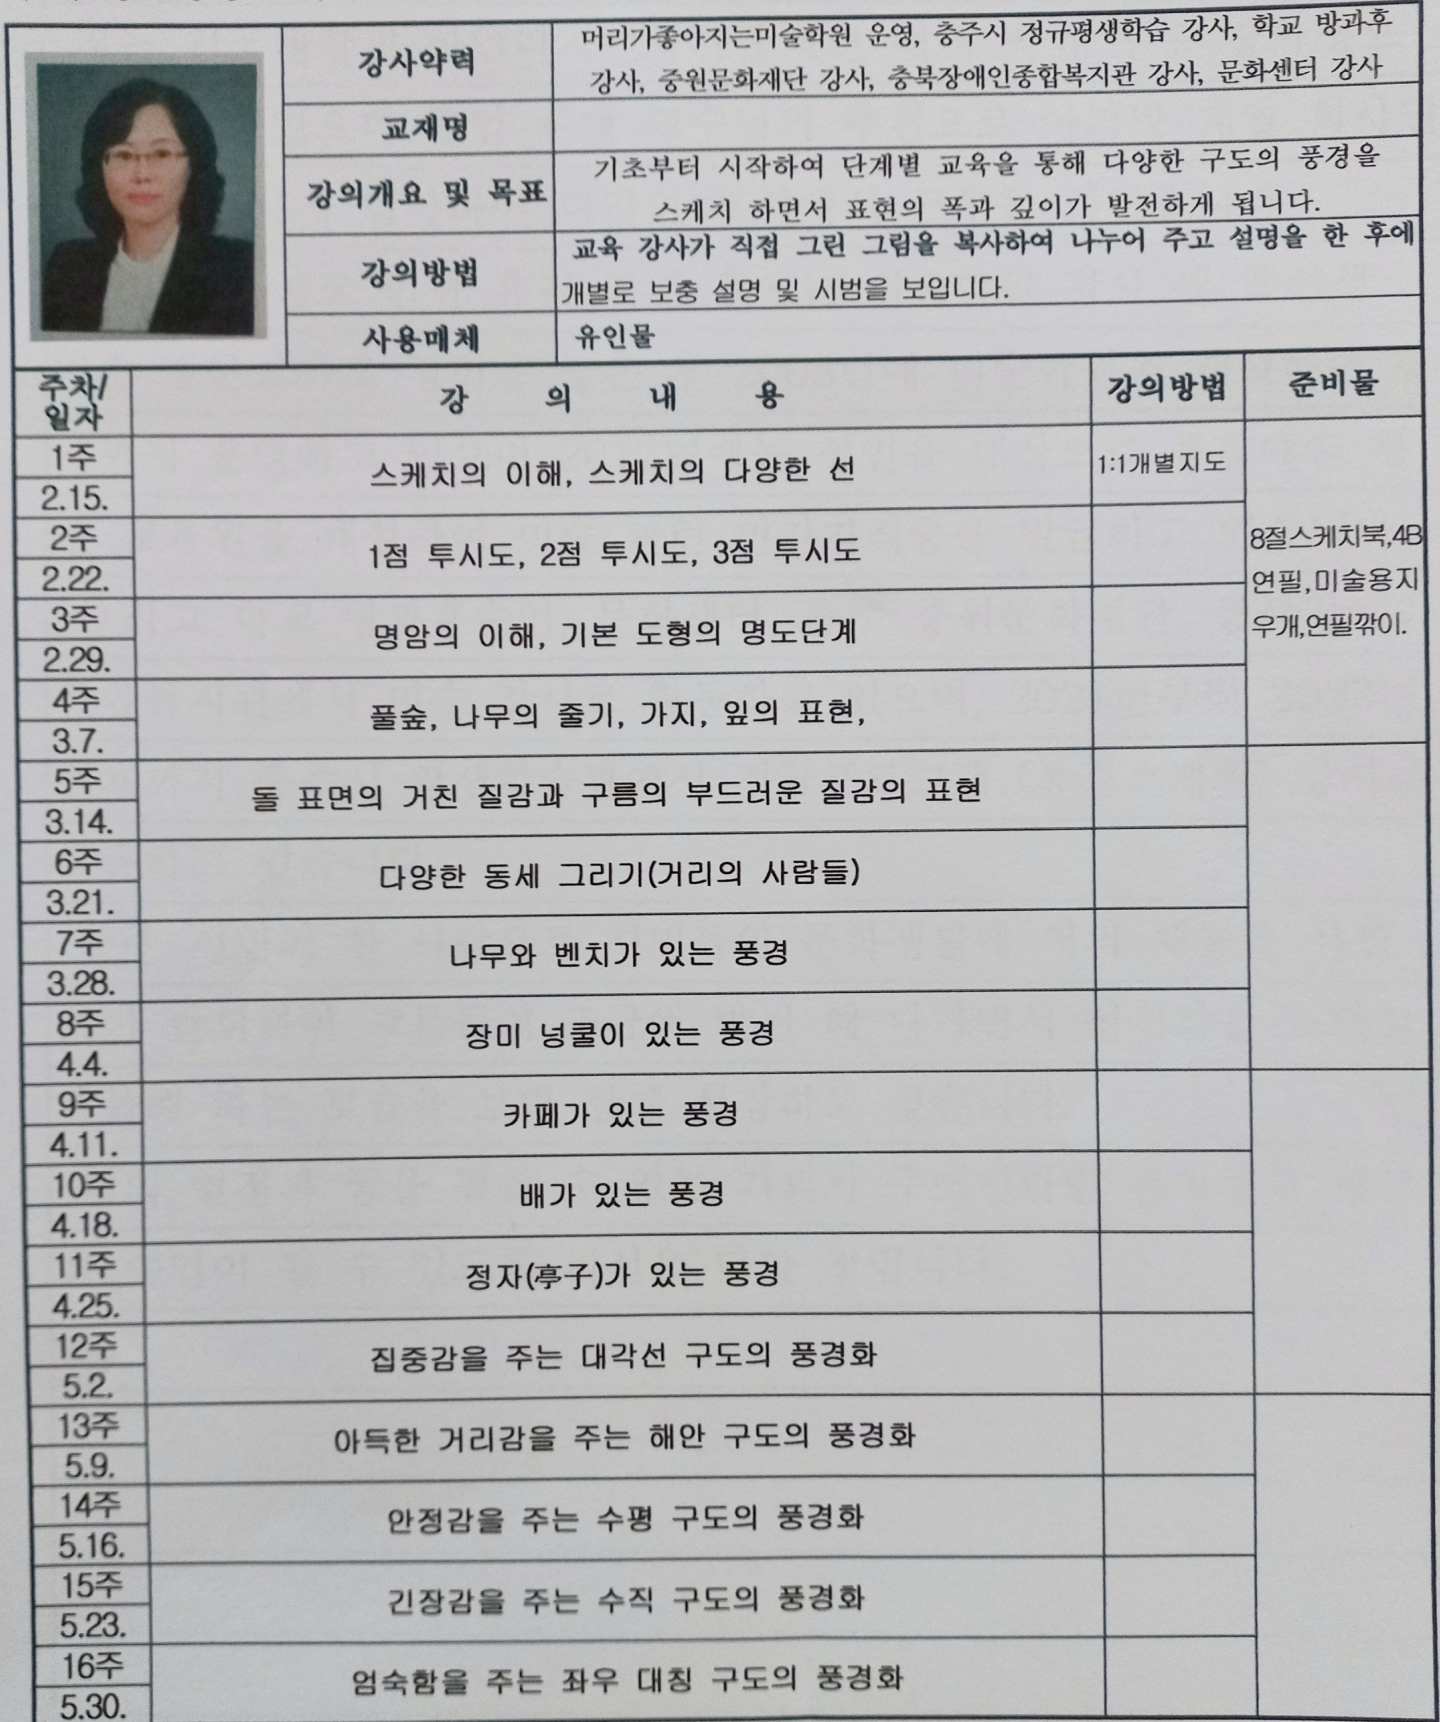 강사약력
머리가좋아지는미술학원 운영, 충주시 정규평생학습 강사, 학교 방과후
강사, 중원문화재단 강사, 충북장애인종합복지관 강사, 문화센터 강사
교재명
강의개요 및 목표
기초부터 시작하여 단계별 교육을 통해 다양한 구도의 풍경을
스케치 하면서 표현의 폭과 깊이가 발전하게 됩니다.
강의방법
교육 강사가 직접 그린 그림을 복사하여 나누어 주고 설명을 한 후에
개별로 보충 설명 및 시범을 보입니다.
사용매체
유인물
주차/
일자
강 의 내 용
강의방법
준비물
1주
2.15.
스케치의 이해, 스케치의 다양한 선
1:1개별지도
8절스케치북,4B
연필,미술용지
우개,연필깎이.
2주
2.22.
1점 투시도, 2점 투시도, 3점 투시도
3주
2.29.
명암의 이해, 기본 도형의 명도단계
4주
3.7.
풀숲, 나무의 줄기, 가지, 잎의 표현,
5주
3.14.
돌 표면의 거친 질감과 구름의 부드러운 질감의 표현
6주
3.21.
다양한 동세 그리기(거리의 사람들)
7주
3.28.
나무와 벤치가 있는 풍경
8주
4.4.
장미 넝쿨이 있는 풍경
9주
4.11.
카페가 있는 풍경
10주
4.18.
배가 있는 풍경
11주
4.25.
정자(亭子)가 있는 풍경
12주
5.2.
집중감을 주는 대각선 구도의 풍경화
13주
5.9.
아득한 거리감을 주는 해안 구도의 풍경화
14주
5.16.
안정감을 주는 수평 구도의 풍경화
15주
5.23.
긴장감을 주는 수직 구도의 풍경화
16주
5.30.
엄숙함을 주는 좌우 대칭 구도의 풍경화